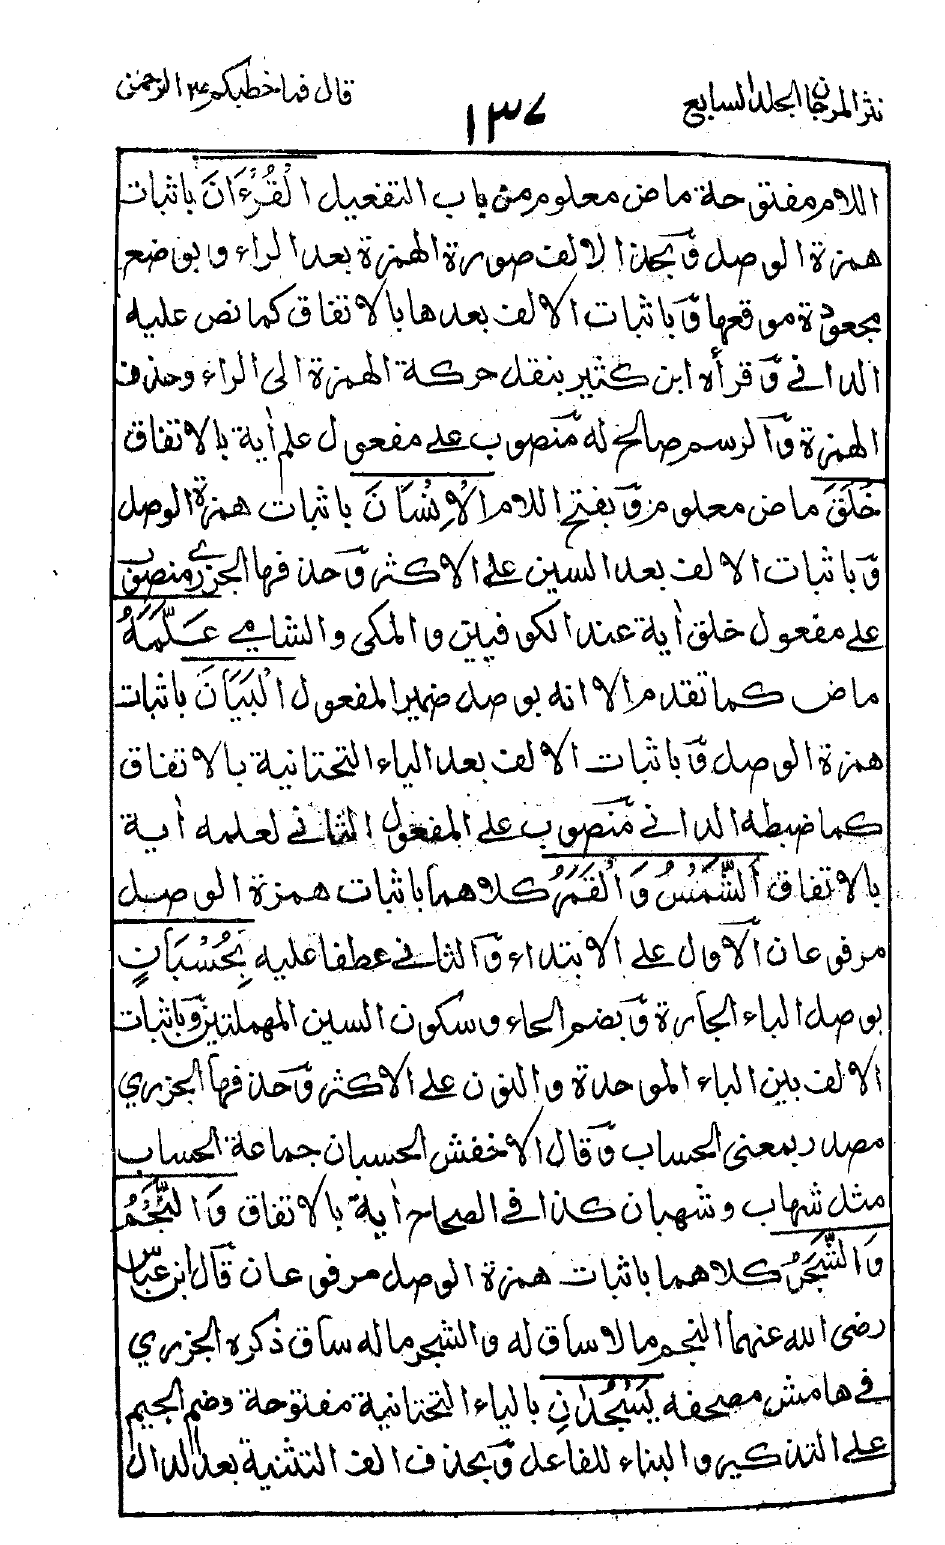 نثر المرجان الجلد السابع
١٣٧
قال فما خطبكم ٢٧ الرحمن
اللام مفتوحة ماض معلوم من باب التفعيل الْقُرْءَانَ باثبات
همزة الوصل وبحذ الالف صورة الهمزة بعد الراء وبوضع
مجعودة موقعها وباثبات الالف بعدها بالاتفاق كما نص عليه
الداني وقرأه ابن كثير بنقل حركة الهمزة الى الراء وحذف
الهمزة والرسم صالح له منصوب على مفعول علم اٰية بالاتفاق
خَلَقَ ماض معلوم وبفتح اللام الْاِنْسَانَ باثبات همزة الوصل
وباثبات الالف بعد السين على الاكثر وحذفها الجزري منصوب
على مفعول خلق اٰية عند الكوفيين والمكى والشامي عَلَّمَهُ
ماض كما تقدم الا انه بوصل ضمير المفعول الْبَيَانَ باثبات
همزة الوصل وباثبات الالف بعد الياء التحتانية بالاتفاق
كما ضبطه الداني منصوب على المفعول الثاني لعلمه اٰية
بالاتفاق اَلشَّمْسُ وَالْقَمَرُ كلاهما باثبات همزة الوصل
مرفوعان الاول على الابتداء والثاني عطفا عليه بِحُسْبَانٍ
بوصل الباء الجارة وبضم الحاء وسكون السين المهملتين وباثبات
الالف بين الباء الموحدة والنون على الاكثر وحذفها الجزري
مصدر بمعنى الحساب وقال الاخفش الحسبان جماعة الحساب
مثل شهاب وشهبان كذا في الصحاح اٰية بالاتفاق وَالنَّجْمُ
وَالشَّجَرُ كلاهما باثبات همزة الوصل مرفوعان قال ابن عباس
رضى الله عنهما النجم مالا ساق له والشجر ماله ساق ذكره الجزري
في هامش مصحفه يَسْجُدَانِ بالياء التحتانية مفتوحة وضم الجيم
على التذكير والبناء للفاعل وبحذف الف التثنية بعد الدال